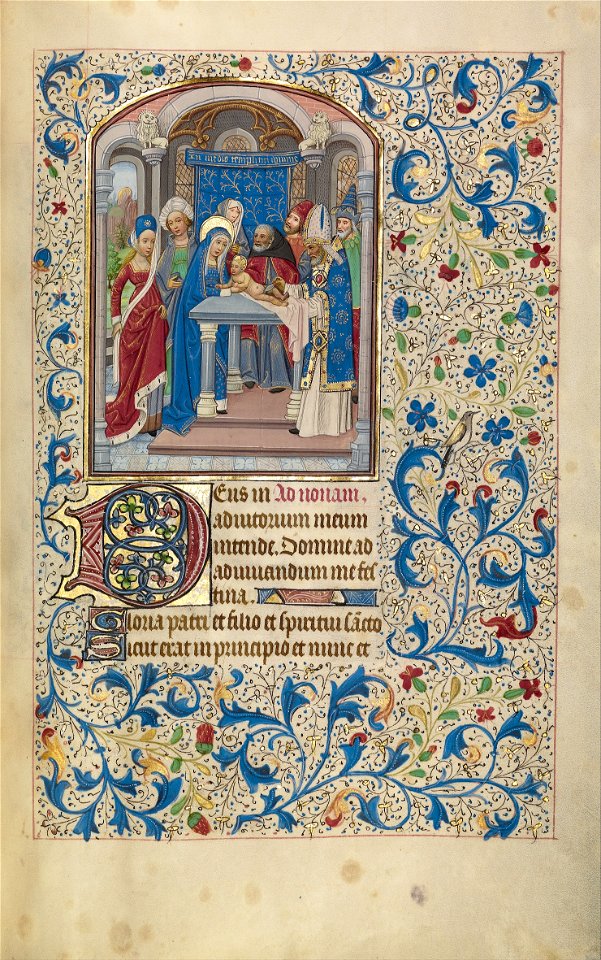 In medio templi
DEus in Ad nonam.
adiutorium meum
intende. Domine ad
adiuuandum me fes
tina.
Gloria patri et filio et spiritui sācto
Sicut erat in principio et nunc et